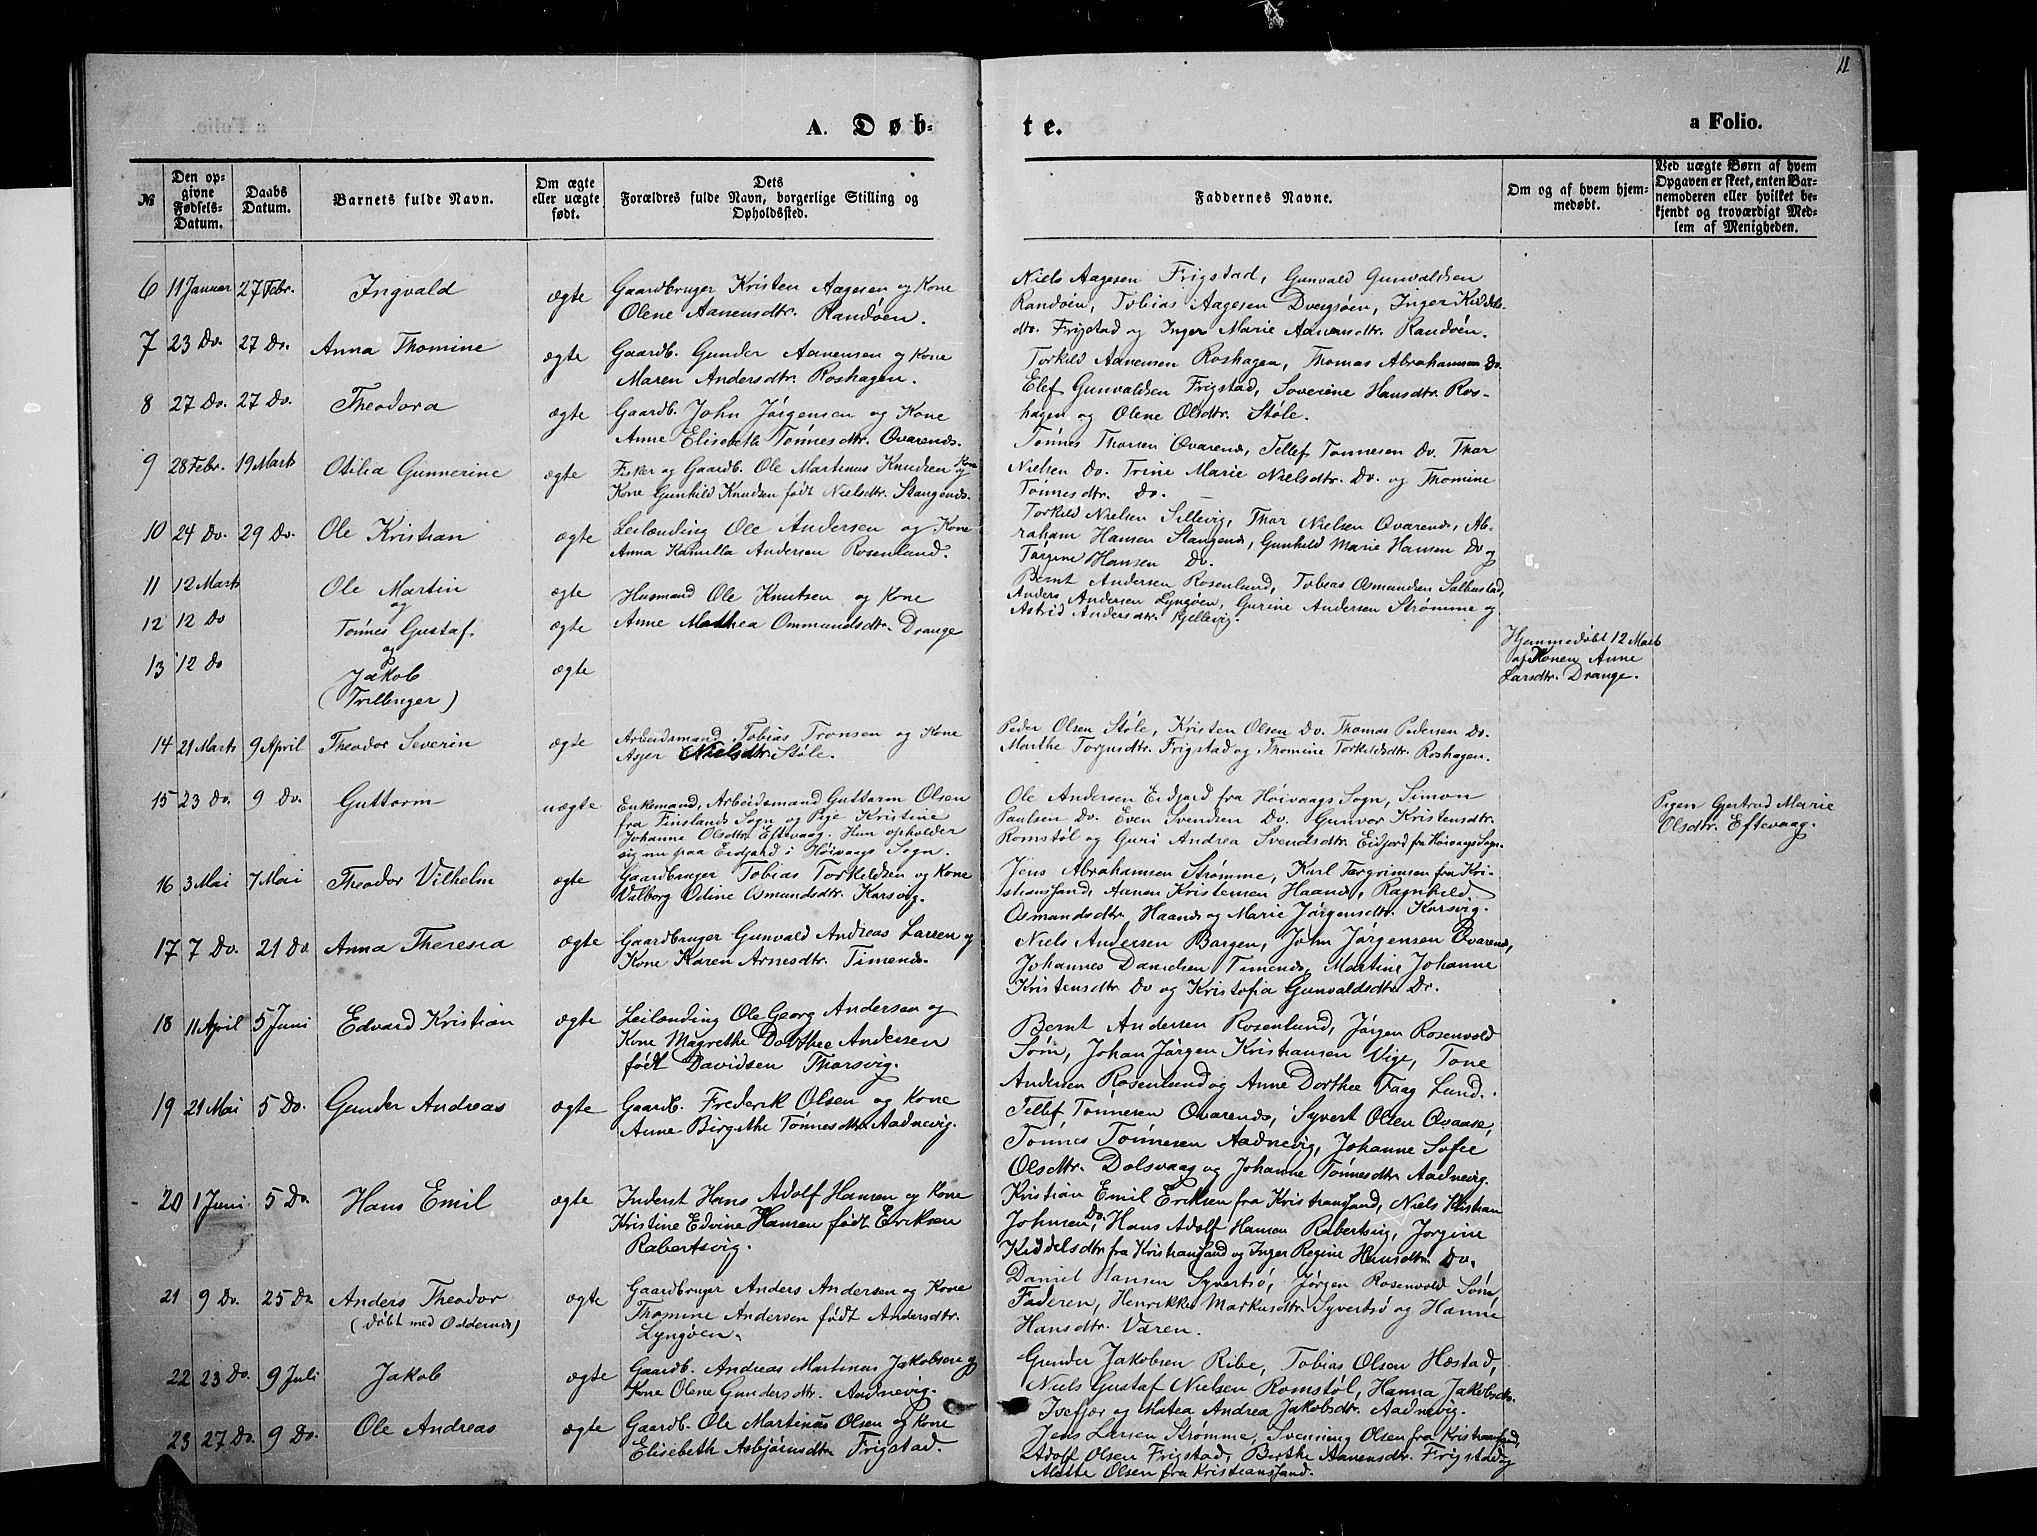 11
A. Døb-
te.
a Folio.
№
Den op-
givne
Fødsels-
Datum.
Daabs
Datum.
Barnets fulde Navn.
Om ægte
eller uægte
født.
Dets
Forældres fulde Navn, borgerlige Stilling og
Opholdssted.
Faddernes Navne.
Om og af hvem hjem-
medøbt.
Ved uægte Børn af hvem
Opgaven er skeet, enten Bar-
nemoderen eller hvilket be-
kjendt og troværdigt Med-
lem af Menigheden.
6 11 Januar 27 Febr. Ingvald ægte Gaardbruger Kristen Aagesen og Kone
Olene Aanensdtr. Randøen.
Niels Aagesen Frigstad, Gunvald Gunvaldsen
Randøen, Tobias Aagesen Dvergsøen, Inger Kiddels-
dtr. Frigstad og Inger Marie Aanensdtr. Randøen.
7 23 Do. 27 Do. Anna Thomine ægte Gaardb. Gunder Aanensen og Kone
Maren Andersdtr. Roshagen.
Torkild Aanensen Roshagen, Thomas Abrahamsen Do.
Elef Gunvaldsen Frigstad, Soverine Hansdtr. Ros-
hagen og Olene Olsdtr. Støle.
8 27 Do. 27 Do. Theodora ægte Gaardb. John Jørgensen og Kone
Anne Elisebeth Tønnesdtr. Qvarends.
Tønnes Thorsen Qvarends, Tellef Tønnesen Do. Thor
Nielsen Do. Trine Marie Nielsdtr. Do. og Thomine
Tønnesdtr. Do.
9 28 Febr. 19 Marts Otilia Gunnerine ægte Fisker og Gaardb. Ole Martinus Knudsen og
Kone Gunhild Knudsen født Nielsdtr. Stangends.
Torkild Nielsen Sillevig, Thor Nielsen Qvarends, Ab-
raham Hansen Stangends, Gunhild Marie Hansen Do og
Jørgine Hansen Do.
10 24 Do. 29 Do. Ole Kristian ægte Leilænding Ole Andersen og Kone
Anna Kamilla Andersen Rosenlund.
Bernt Andersen Rosenlund, Tobias Osmundsen Salbustad,
Anders Andersen Lyngøen, Gurine Andersen Strømme og
Astrid Andersdtr. Kjellevig.
11 12 Marts Ole Martin ægte Husmand Ole Knutsen og Kone
og
12 12 Do Tønnes Gustaf. ægte Anne Mathea Ommundsdtr. Drange
og
13 12 Do Jakob ægte
(Trillinger)
Hjemmedøbt 12 Marts
af Konen Anne
Larsdtr. Drange.
14 21 Marts 9 April Theodor Severin ægte Arbeidsmand Tobias Tronsen og Kone
Asjer Nielsdtr. Støle.
Peder Olsen Støle, Kristen Olsen Do. Thomas Pedersen Do.
Marthe Torjusdtr. Frigstad og Thomine Torkildsdtr. Roshagen.
15 23 Do. 9 Do. Guttorm uægte Enkemand, Arbeidsmand Guttorm Olsen
fra Finslands Sogn og Pige Kristine
Johanne Olsdtr. Eftevaag. Hun opholder
sig nu paa Eidjord i Høivaags Sogn.
Ole Andersen Eidjord fra Høivaags Sogn, Simon
Paulsen Do. Even Svendsen Do. Gunvor Kristensdtr.
Romstøl og Guri Andrea Svendsdtr. Eidjord fra Høivaags Sogn.
Pigen Gjertrud Marie
Olsdtr. Eftevaag.
16 3 Mai 7 Mai Theodor Vilhelm ægte Gaardbruger Tobias Torkildsen og Kone
Valborg Odine Osmundsdtr. Korsvig.
Jens Abrahamsen Strømme, Karl Torgrimsen fra Kri-
stiansand, Aanen Kristensen Haanes, Ragnhild
Osmundsdtr. Haanes og Marie Jørgensdtr. Korsvig.
17 7 Do. 21 Do Anna Theresia ægte Gaardbruger Gunvald Andreas Larsen og
Kone Karen Arnesdtr. Timends.
Niels Andersen Bargen, John Jørgensen Qvarends,
Johannes Danielsen Timends, Martine Johanne
Kristensdtr Do og Kristofia Gunvaldsdtr. Do.
18 11 April 5 Juni Edvard Kristian ægte Leilænding Ole Georg Andersen og
Kone Magrethe Dorthee Andersen
født Davidsen Thorsvig.
Bernt Andersen Rosenlund, Jørgen Rosenvold
Søm, Johan Jørgen Kristiansen Vige, Tone
Andersen Rosenlund og Anne Dorthee Faag Lund.
19 21 Mai 5 Do. Gunder Andreas ægte Gaardb. Frederik Olsen og Kone
Anne Birgithe Tønnesdtr. Aadnevig.
Tellef Tønnesen Qvarends, Syvert Olsen Qvaase,
Tønnes Tønnesen Aadnevig, Johanne Sofie
Olsdtr. Dolsvaag og Johanne Tønnesdtr. Aadnevig.
20 1 Juni 5 Do. Hans Emil ægte Inderst Hans Adolf Hansen og Kone
Kristine Edvine Hansen født Eriksen
Rabertsvig.
Kristian Emil Eriksen fra Kristiansand, Niels Kristian
Johnsen Do. Hans Adolf Hansen Rabertsvig, Jørgine
Kiddelsdtr. fra Kristiansand og Inger Regine Hansdtr. Do.
21 9 Do. 25 Do. Anders Theodor ægte Gaardbruger Anders Andersen og Kone
(døbt med Oddernes) Thomine Andersen født Andersdtr.
Lyngøen.
Daniel Hansen Syvertsø, Jørgen Rosenvold Søm,
Faderen, Henrikke Markusdtr. Syvertsø og Hanne
Hansdtr. Varen.
22 23 Do. 9 Juli Jakob ægte Gaardb. Andreas Martinus Jakobsen og
Kone Olene Gundersdtr. Aadnevig.
Gunder Jakobsen Ribe, Tobias Olsen Hæstad,
Niels Gustaf Nielsen Romstøl, Hanna Jakobsdtr.
Ivefjær og Matea Andrea Jakobsdtr. Aadnevig.
23 27 Do. 9 Do. Ole Andreas ægte Gaardb. Ole Martinus Olsen og Kone
Elisebeth Asbjørnsdtr. Frigstad.
Jens Larsen Strømme, Svennung Olsen fra Kristiansand,
Adolf Olsen Frigstad, Berthe Aanensdtr. Frigstad og
Mette Olsen fra Kristiansand.